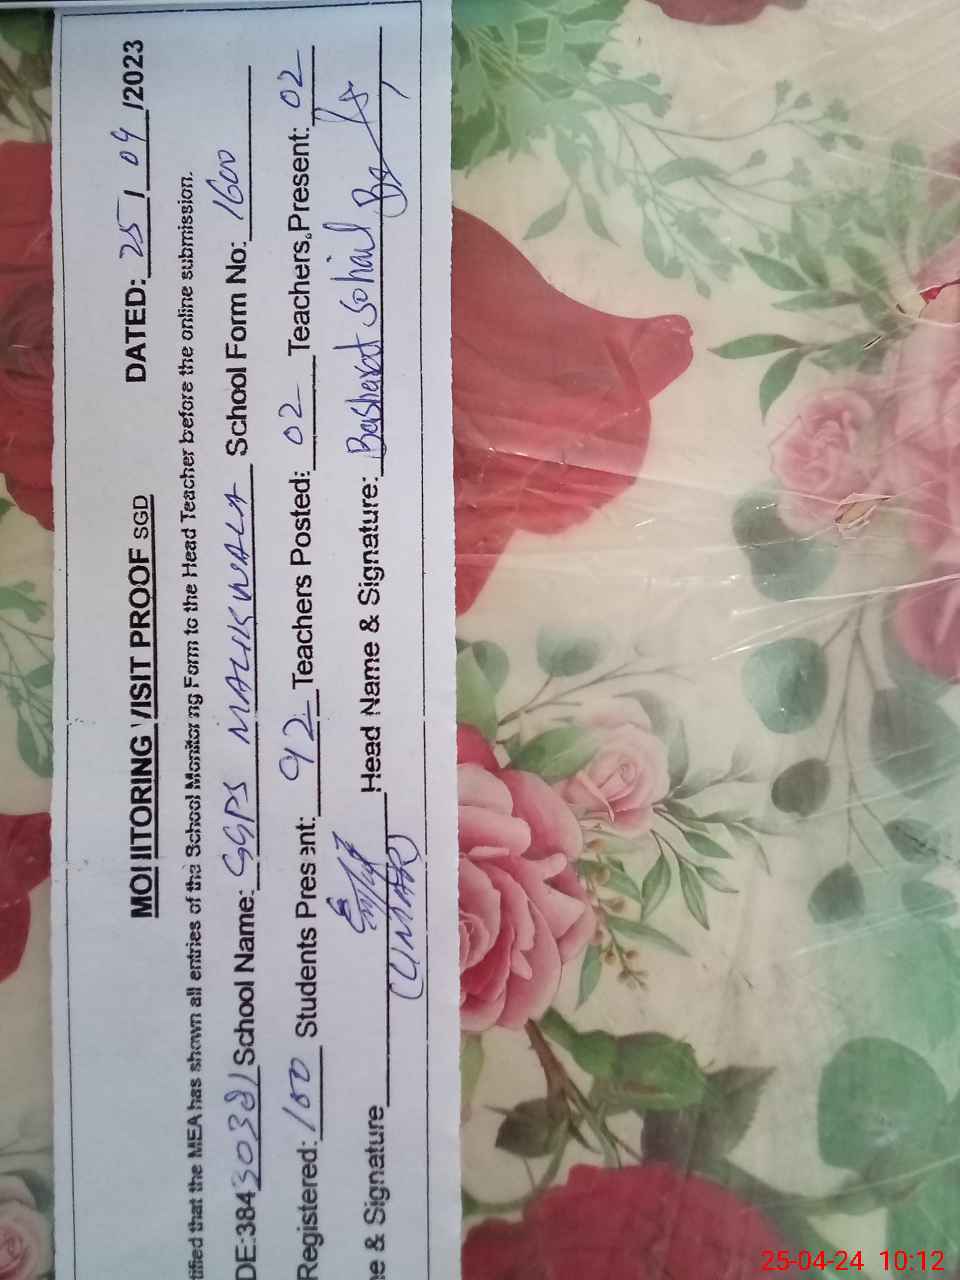 MONITORING VISIT PROOF SGD DATED: 25/04/2023
tified that the MEA has shown all entries of the School Monitoring Form to the Head Teacher before the online submission.
DE:38430321 School Name: GGPS MALIKWALA School Form No: 1600
Registered: 100 Students Present: 92 Teachers Posted: 02 Teachers Present: 02
e & Signature (UMAR) Head Name & Signature: Basharat Sohail
25-04-24 10:12